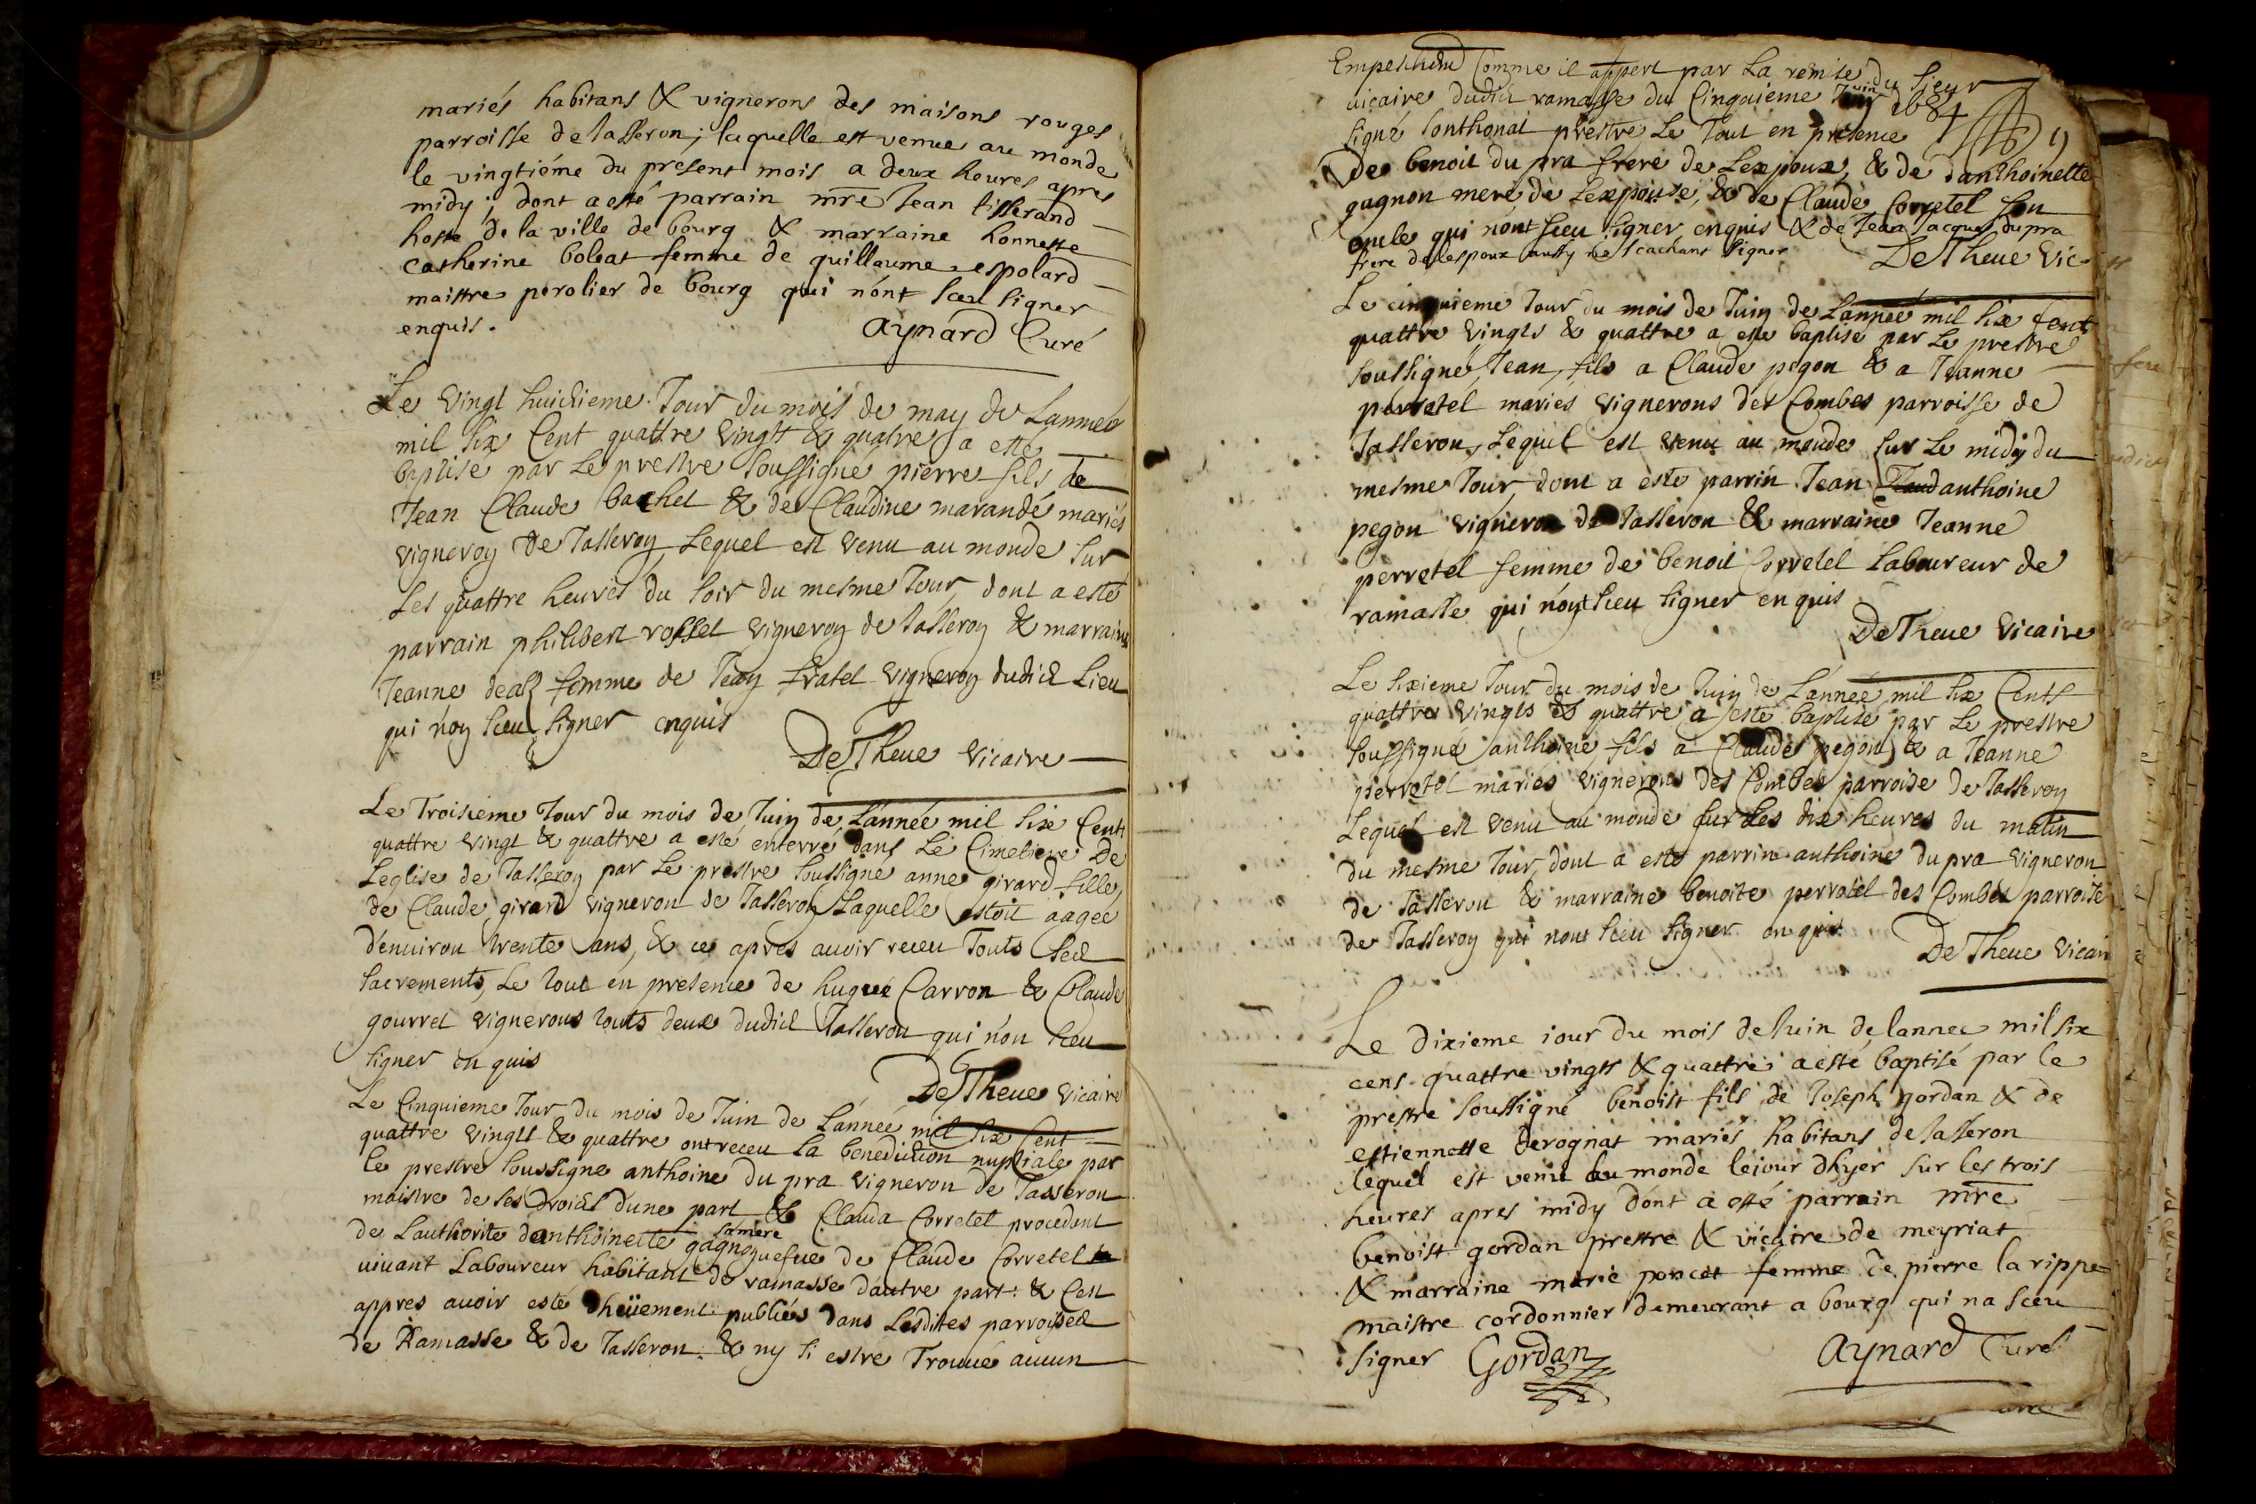 mariés habitans & vignerons des maisons rouges
parroisse de Jasseron; laquelle est venue au monde
le vingtiéme du present mois a deux heures apres
midy; dont a esté parrain mre Jean tisserand
hoste de la ville de bourg & marraine honneste
catherine boleat femme de guillaume espolard
maistre perolier de bourg qui n'ont sceu signer
enquis. Aynard Curé
Le Vingt huictieme Jour du mois de may de Lannée
mil six Cent quattre Vingts & quatre a esté
baptisé par Le prestre soussigné pierre fils de
Jean Claude bachet & de Claudine marandé mariés
vigneron de Jasseron Lequel est venu au monde sur
Les quattre heures du soir du mesme Jour dont a esté
parrain philibert rosset vigneron de Jasseron & marraine
Jeanne femme de Jean fratel vigneron dudict Lieu
qui n'on sceu signer enquis
DeTheue Vicaire
Le Troisieme Jour du mois de Juin de L'année mil six Cent
quattre vingt & quattre a esté enterré dans Le Cimetiere De
Leglise de Jasseron par Le prestre soussigné anne girard fille
de Claude girard vigneron de Jasseron Laquelle estoit aagée
d'enuiron trente ans, & ce apres auoir receu Touts ses
sacrements, Le tout en presence de hugue Carron & Claude
gourret vignerons touts deux dudict Jasseron qui n'on sceu
signer enquis
DeTheue Vicaire
Le Cinquieme Jour du mois de Juin de L'année mil six Cent
quattre vingts & quattre ont receu la benediction nuptiale par
le prestre soussigné anthoine du pra vigneron de Jasseron
maistre de ses droicts d'une part & Clauda Corretel procedent
de L'authorité danthoinette gagnon sa mere uefue de Claude Corretel
viuant Laboureur habitant de ramasse d'autre part: & Cest
appres auoir esté dheüement publiés dans Lesdites parroisses
de Ramasse & de Jasseron. & ny si estre Trouué aucun
Empeschem comme il appert par La remise du sieur
vicaire dudict ramasse du Cinquieme Juin 1684
signé Jonthonat prestre Le Tout en presence
De benoit du pra frere de Lexpoux, & de danthoinette
gagnon mere de Lexpouse, & de Claude Corretel son
oncle qui n'ont sceu signer enquis & de Jean Jacques dupra
frere de lespoux aussy ne scachant signer DeTheue Vic
Le cinquieme Jour du mois de Juin de Lannée mil six Cent
quattre Vingts & quattre a esté baptisé par Le prestre
soussigné, Jean, fils a Claude pegon & a Jeanne
perretel mariés vignerons des Combes parroisse de
Jasseron, Lequel est venu au monde sur Le midy du
mesme Jour, dont a esté parrin Jean anthoine
pegon vigneron de Jasseron & marraine Jeanne
perretel femme de benoit Corretel Laboureur de
ramasse qui n'ont sceu signer enquis
DeTheue Vicaire
Le sixieme Jour du mois de Juin de L'année mil six Cents
quattre Vingts & quattre, a esté baptisé par Le prestre
soussigné anthoine fils a Claude pegon & a Jeanne
pierretel mariés vignerons des Combes parroise de Jasseron
Lequel est venu au monde sur Les dix heures du matin
du mesme Jour, dont a esté parrin anthoine du pra vigneron
de Jasseron & marraine benoite perretel des Combes parroise
de Jasseron qui nont sceu signer enquis
DeTheue Vicair
Le Dixieme iour du mois de Juin de lannee mil six
cens quattre vingts & quattre a esté baptisé par le
prestre soussigné benoist fils de Joseph gordan & de
estiennette derognat mariés habitans de Jasseron
lequel est venu au monde le iour dhyer sur les trois
heures apres midy dont a esté parrain mre
benoist gordan prestre & vicaire de meyriat
& marraine marie poncet femme de pierre la rippe
maistre cordonnier demeurant a bourg qui na sceu
signer Gordan Aynard Curé